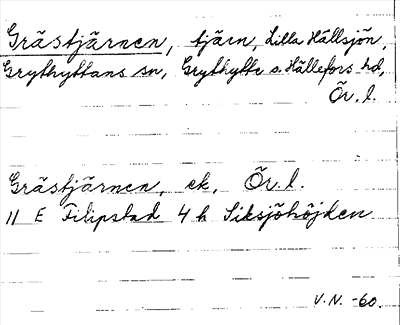 Grästjärnen, tjärn, Lilla Hällsjön,
Grythyttans sn, Grythytte o. Hällefors hd,
Ör. l.
Grästjärnen, ek, Ör. l.
11 E Filipstad 4 h Siksjöhöjden
V.N. -60.